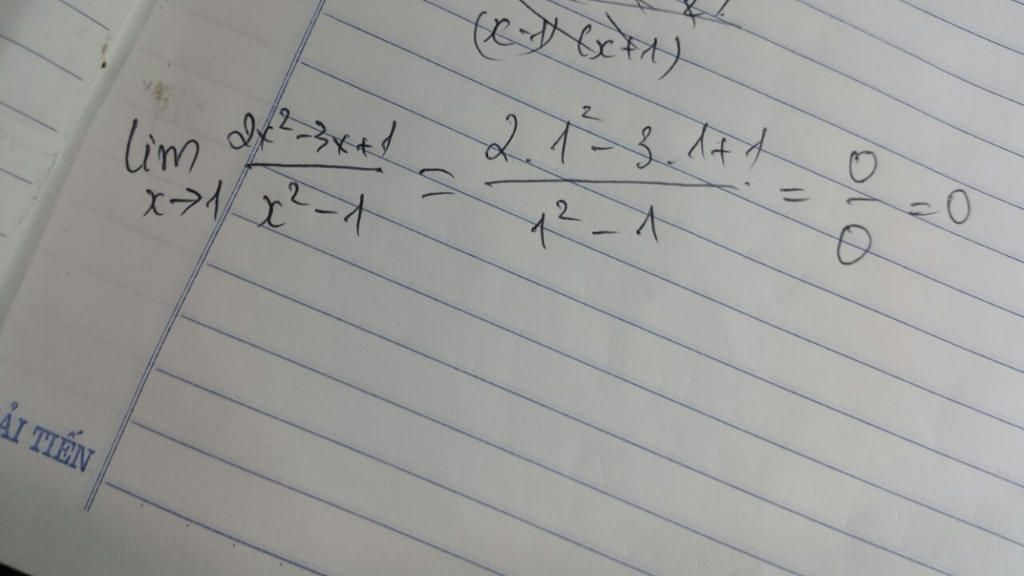 (x-1) (x+1)
lim x→1 (2x² - 3x + 1)/(x² - 1) = (2.1² - 3.1 + 1)/(1² - 1) = 0/0 = 0
ẢI TIẾN